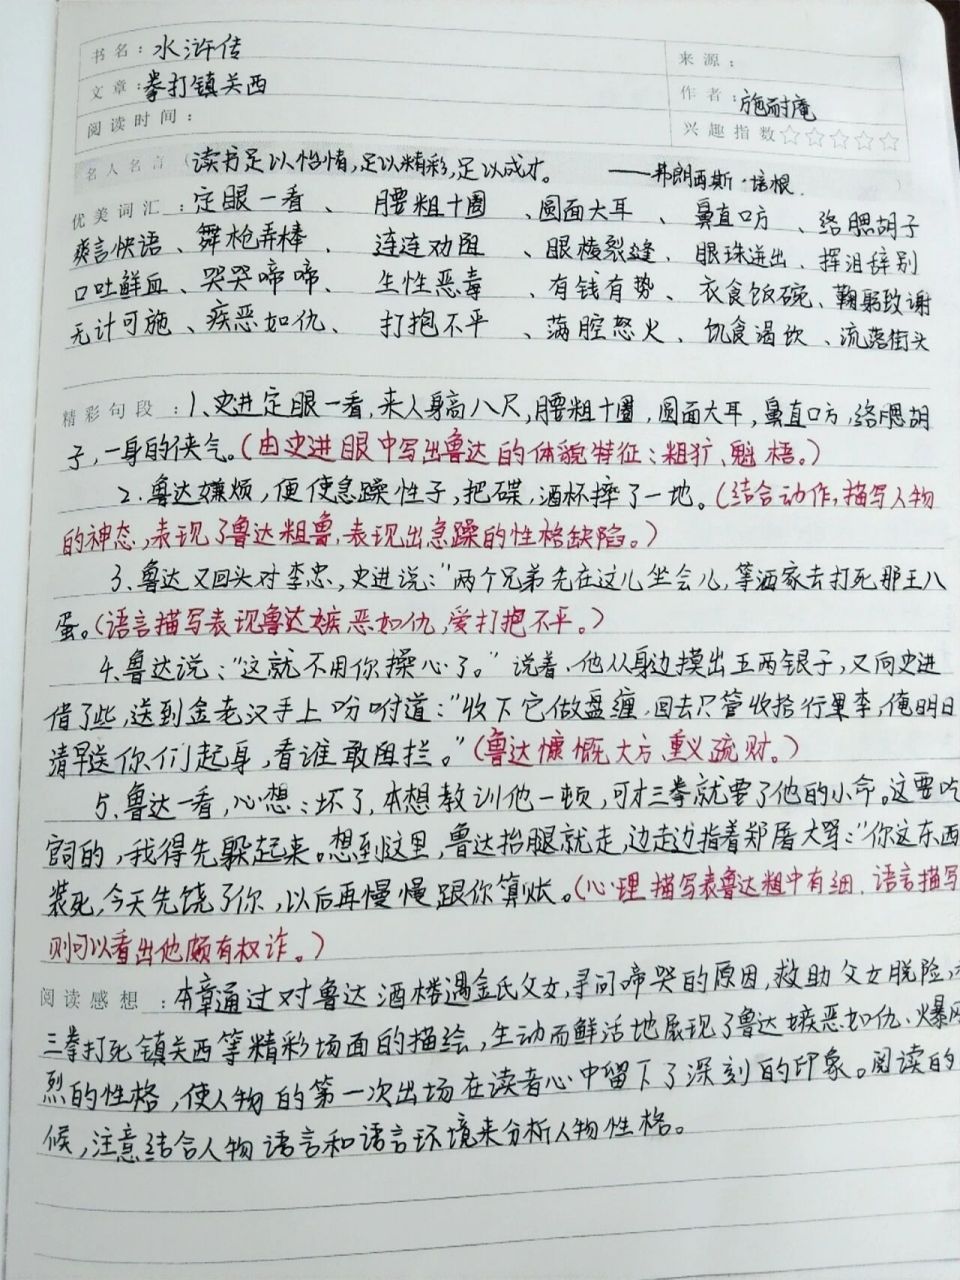 书名：水浒传
来源：
文章：拳打镇关西
作者：施耐庵
阅读时间：
兴趣指数☆☆☆☆☆
名人名言（读书足以怡情，足以精彩，足以成才。 ——弗朗西斯·培根.）
优美词汇：定眼一看、腰粗十圈、圆面大耳、鼻直口方、络腮胡子
爽言快语、舞枪弄棒、连连劝阻、眼棱裂缝、眼珠迸出、挥泪辞别
口吐鲜血、哭哭啼啼、生性恶毒、有钱有势、衣食饭碗、鞠躬致谢
无计可施、疾恶如仇、打抱不平、满腔怒火、饥食渴饮、流落街头
精彩句段：1、史进定眼一看，来人身高八尺，腰粗十圈，圆面大耳，鼻直口方，络腮胡
子，一身的侠气。（由史进眼中写出鲁达的体貌特征：粗犷、魁梧。）
2、鲁达嫌烦，便使急躁性子，把碟，酒杯摔了一地。（结合动作，描写人物
的神态，表现了鲁达粗鲁，表现出急躁的性格缺陷。）
3、鲁达又回头对李忠，史进说：“两个兄弟先在这儿坐会儿，等洒家去打死那王八
蛋。（语言描写表现鲁达嫉恶如仇，爱打抱不平。）
4、鲁达说：“这就不用你操心了。”说着，他从身边摸出五两银子，又向史进
借了些，送到金老汉手上吩咐道：“收下它做盘缠，回去只管收拾行里李，俺明日
清早送你们起身，看谁敢阻拦。”（鲁达慷慨大方重义疏财。）
5、鲁达一看，心想：坏了，本想教训他一顿，可才三拳就要了他的小命。这要吃
官司的，我得先躲起来。想到这里，鲁达抬腿就走，边走边指着郑屠大骂：“你这东西
装死，今天先饶了你，以后再慢慢跟你算账。（心理描写表鲁达粗中有细，语言描写
则可以看出他颇有权诈。）
阅读感想：本章通过对鲁达酒楼遇金氏父女，寻问啼哭的原因，救助父女脱险，
三拳打死镇关西等精彩场面的描绘，生动而鲜活地展现了鲁达嫉恶如仇、爆
烈的性格，使人物的第一次出场在读者心中留下了深刻的印象。阅读的
候，注意结合人物语言和语言环境来分析人物性格。